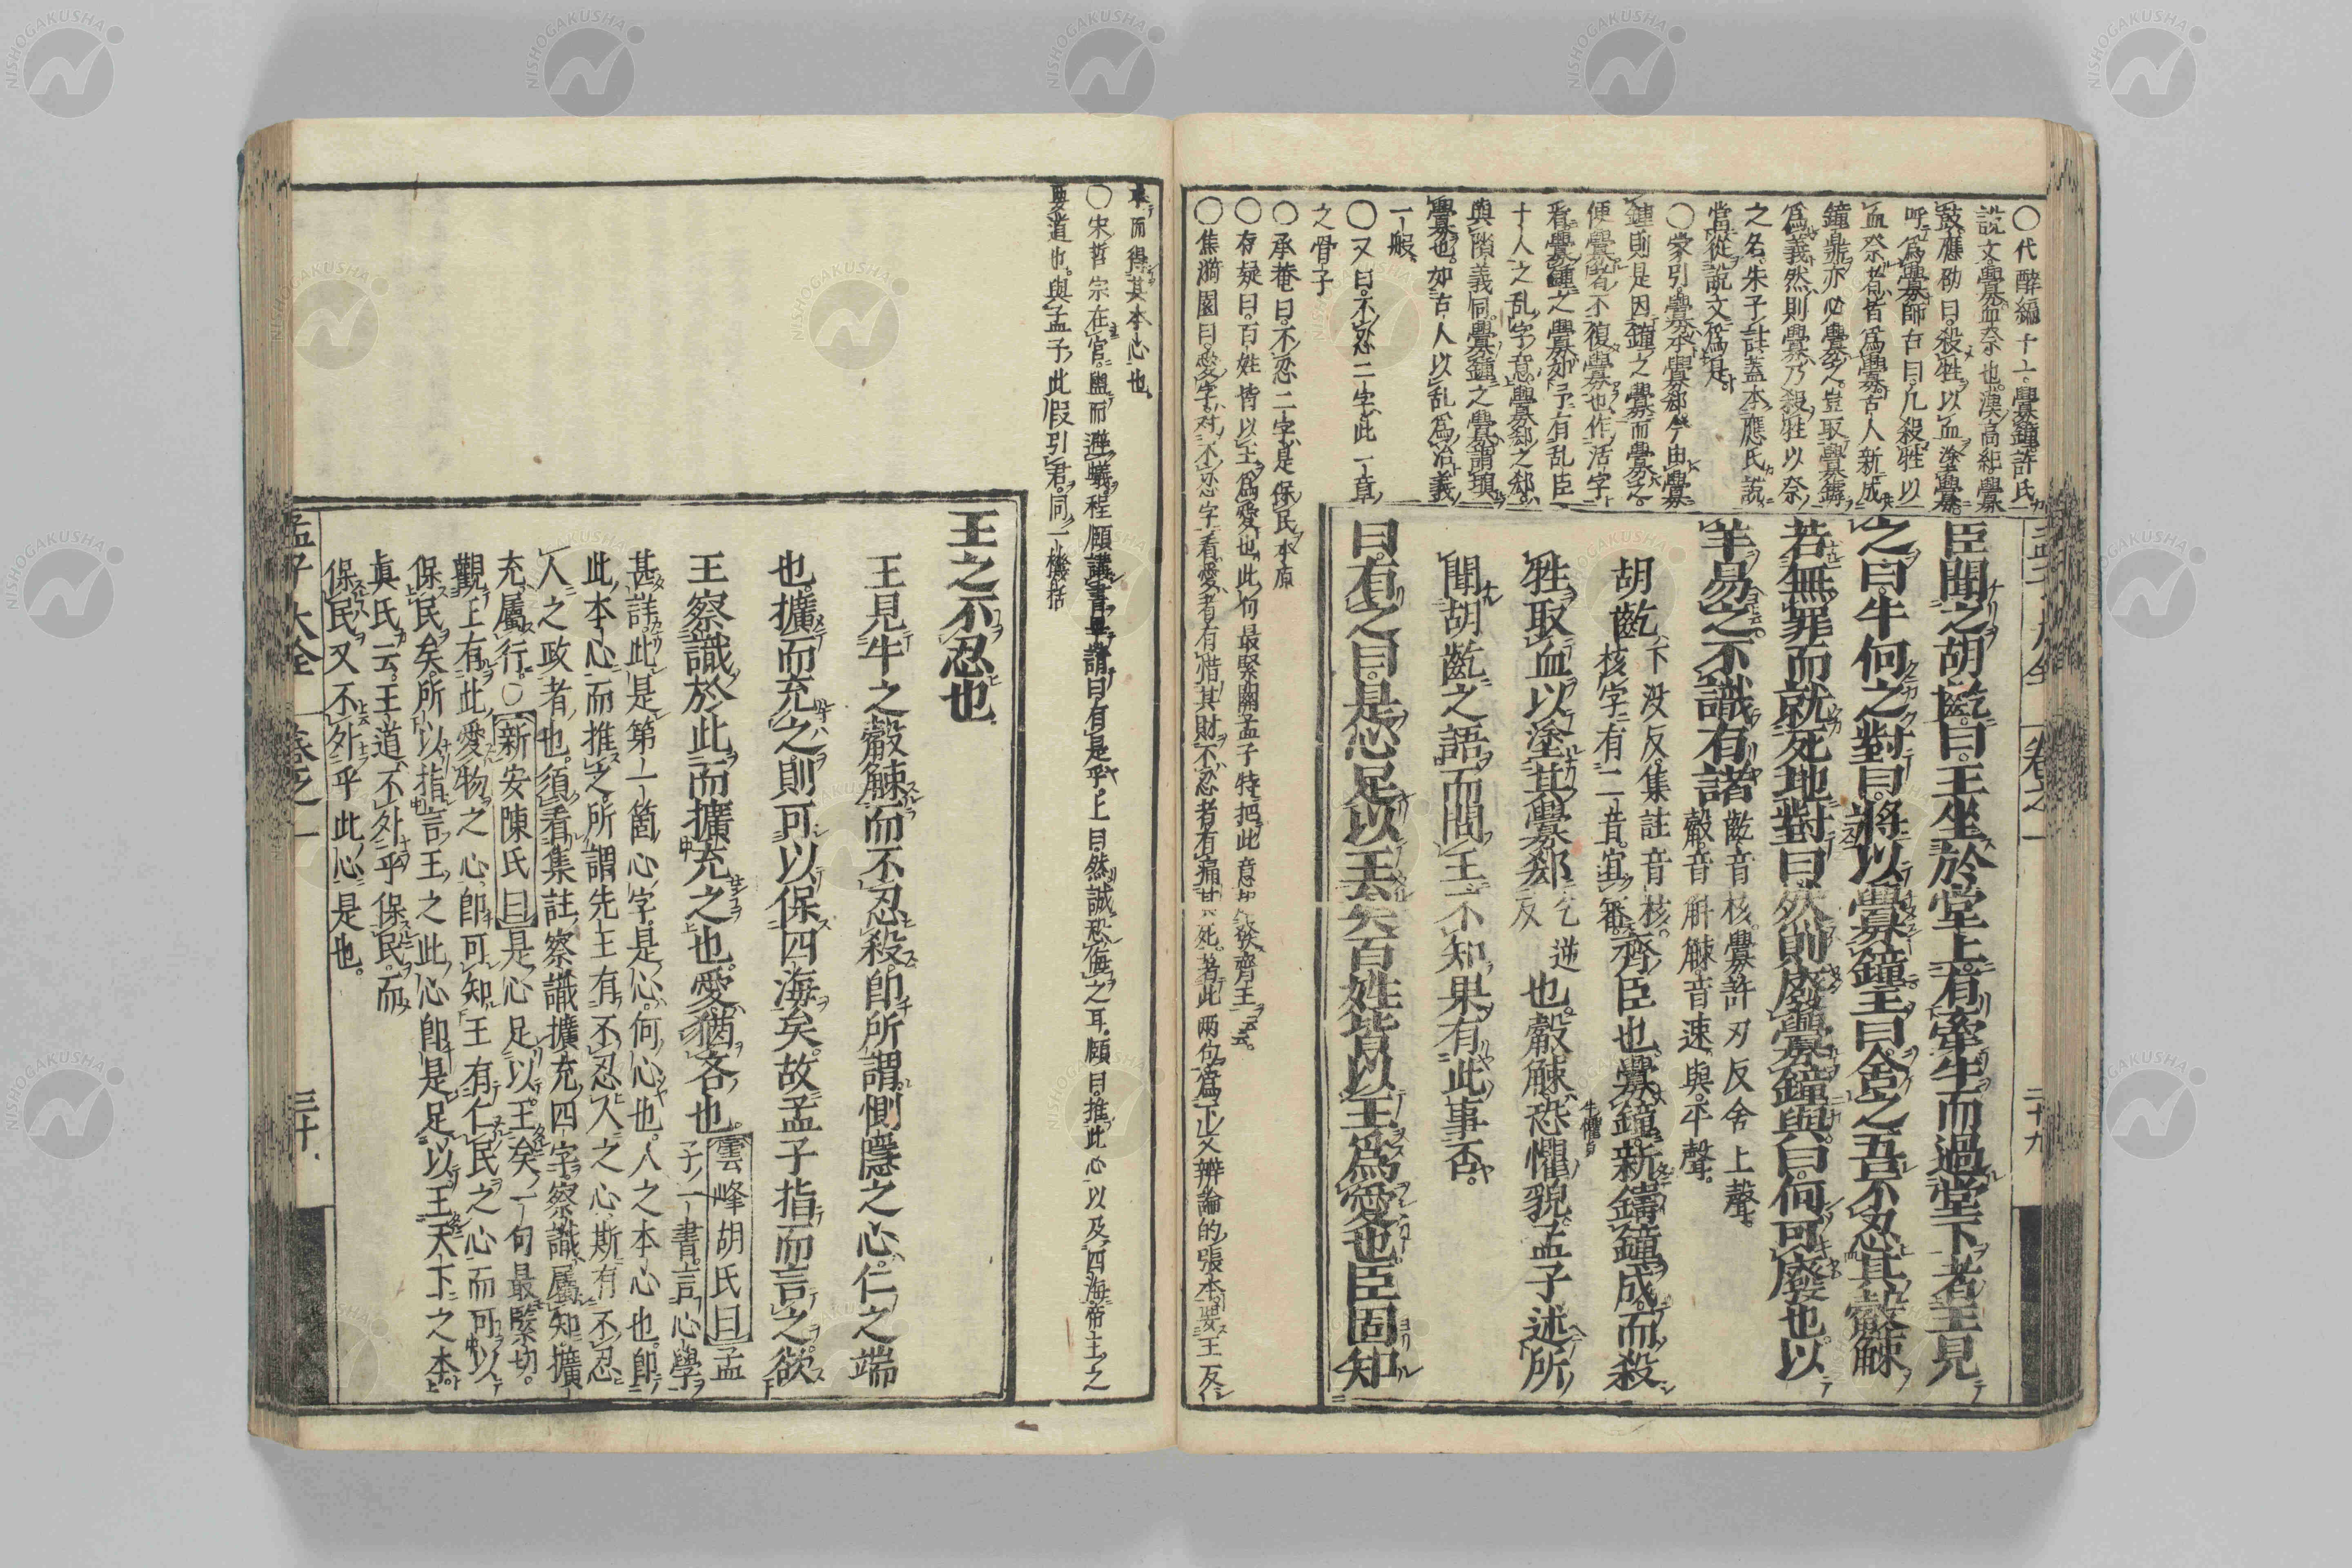 〇代醉編十一。釁鐘。許氏
說文。釁血祭也。漢高紀。釁
鼓。應劭曰。殺牲以血塗釁
呼爲釁。師古曰。凡殺牲以
血祭者皆爲釁。古人新成
鐘鼎亦必釁之。豈取釁罅
爲義。然則釁乃殺牲以祭
之名。朱子註蓋本應氏說
當從說文爲是。
〇家引。釁本釁郄。今由釁
鍾則是因鐘之釁而釁之。
便釁者不復釁也。作活字
看。釁鍾之釁。如予有乱臣
十人之乱字意。釁郄之郄。
與隙義同。釁鍾之釁。謂塡
釁也。如古人以乱爲治義
一般。
〇又曰。不忍二字。此一章
之骨子
〇承菴曰。不忍二字。是保民本原
〇存疑曰。百姓皆以王爲愛也。此何最緊關。孟子特把此意發齊王云云。
〇焦漪園曰。愛字対不忍字看。愛者有惜其財。不忍者有痛其死。着此兩句。爲下文辨論的張本。要王反
臣聞之胡齕。曰。王坐於堂上。有牽牛而過堂下者。王見
之曰。牛何之。對曰。將以釁鐘。王曰。舍之。吾不忍其觳觫
若無罪而就死地。對曰。然則廢釁鐘與。曰。何可廢也。以
羊易之。不識有諸
齕音核。釁許刃反。舍上聲。
觳音斛。觫音速。與平聲。
胡齕
下没反。集註音核。
核字有二音。宜審。
齊臣也。釁鐘。新鑄鐘成。而殺
牲取血以塗其釁郄
乞逆
反
也。觳觫。恐懼貌。孟子述所
聞胡齕之語而問王。不知果有此事否。
曰。有之。曰。是心足以王矣。百姓皆以王爲愛也。臣固知
卷之一
二十九
本而得其本心也。
〇宋哲宗在官。盥而避蟻。程頤講書畢。謂曰。有是乎。上曰。然。誠恐傷之耳。頤曰。推此心以及四海。帝王之
要道也。與孟子此假引君。同一機括
王之不忍也。
王見牛之觳觫而不忍殺。卽所謂惻隱之心。仁之端
也。擴而充之。則可以保四海矣。故孟子指而言之。欲
王察識於此。而擴充之也。愛猶吝也。
雲峰胡氏曰孟
子一書。言心學
甚詳。此是第一箇心字。是心。何心也。人之本心也。卽
此本心而推之。所謂先王有不忍人之心。斯有不忍
人之政者也。須看集註察識擴充四字。察識屬知。擴
充屬行。〇新安陳氏曰是心足以王矣一句最緊切。
觀上有此愛物之心。卽可知王有仁民之心而可以
保民矣。所以指言王之此心卽是足以王天下之本
眞氏云。王道不外乎保民。而
保民又不外乎此心是也。
孟子大全
卷之一
三十